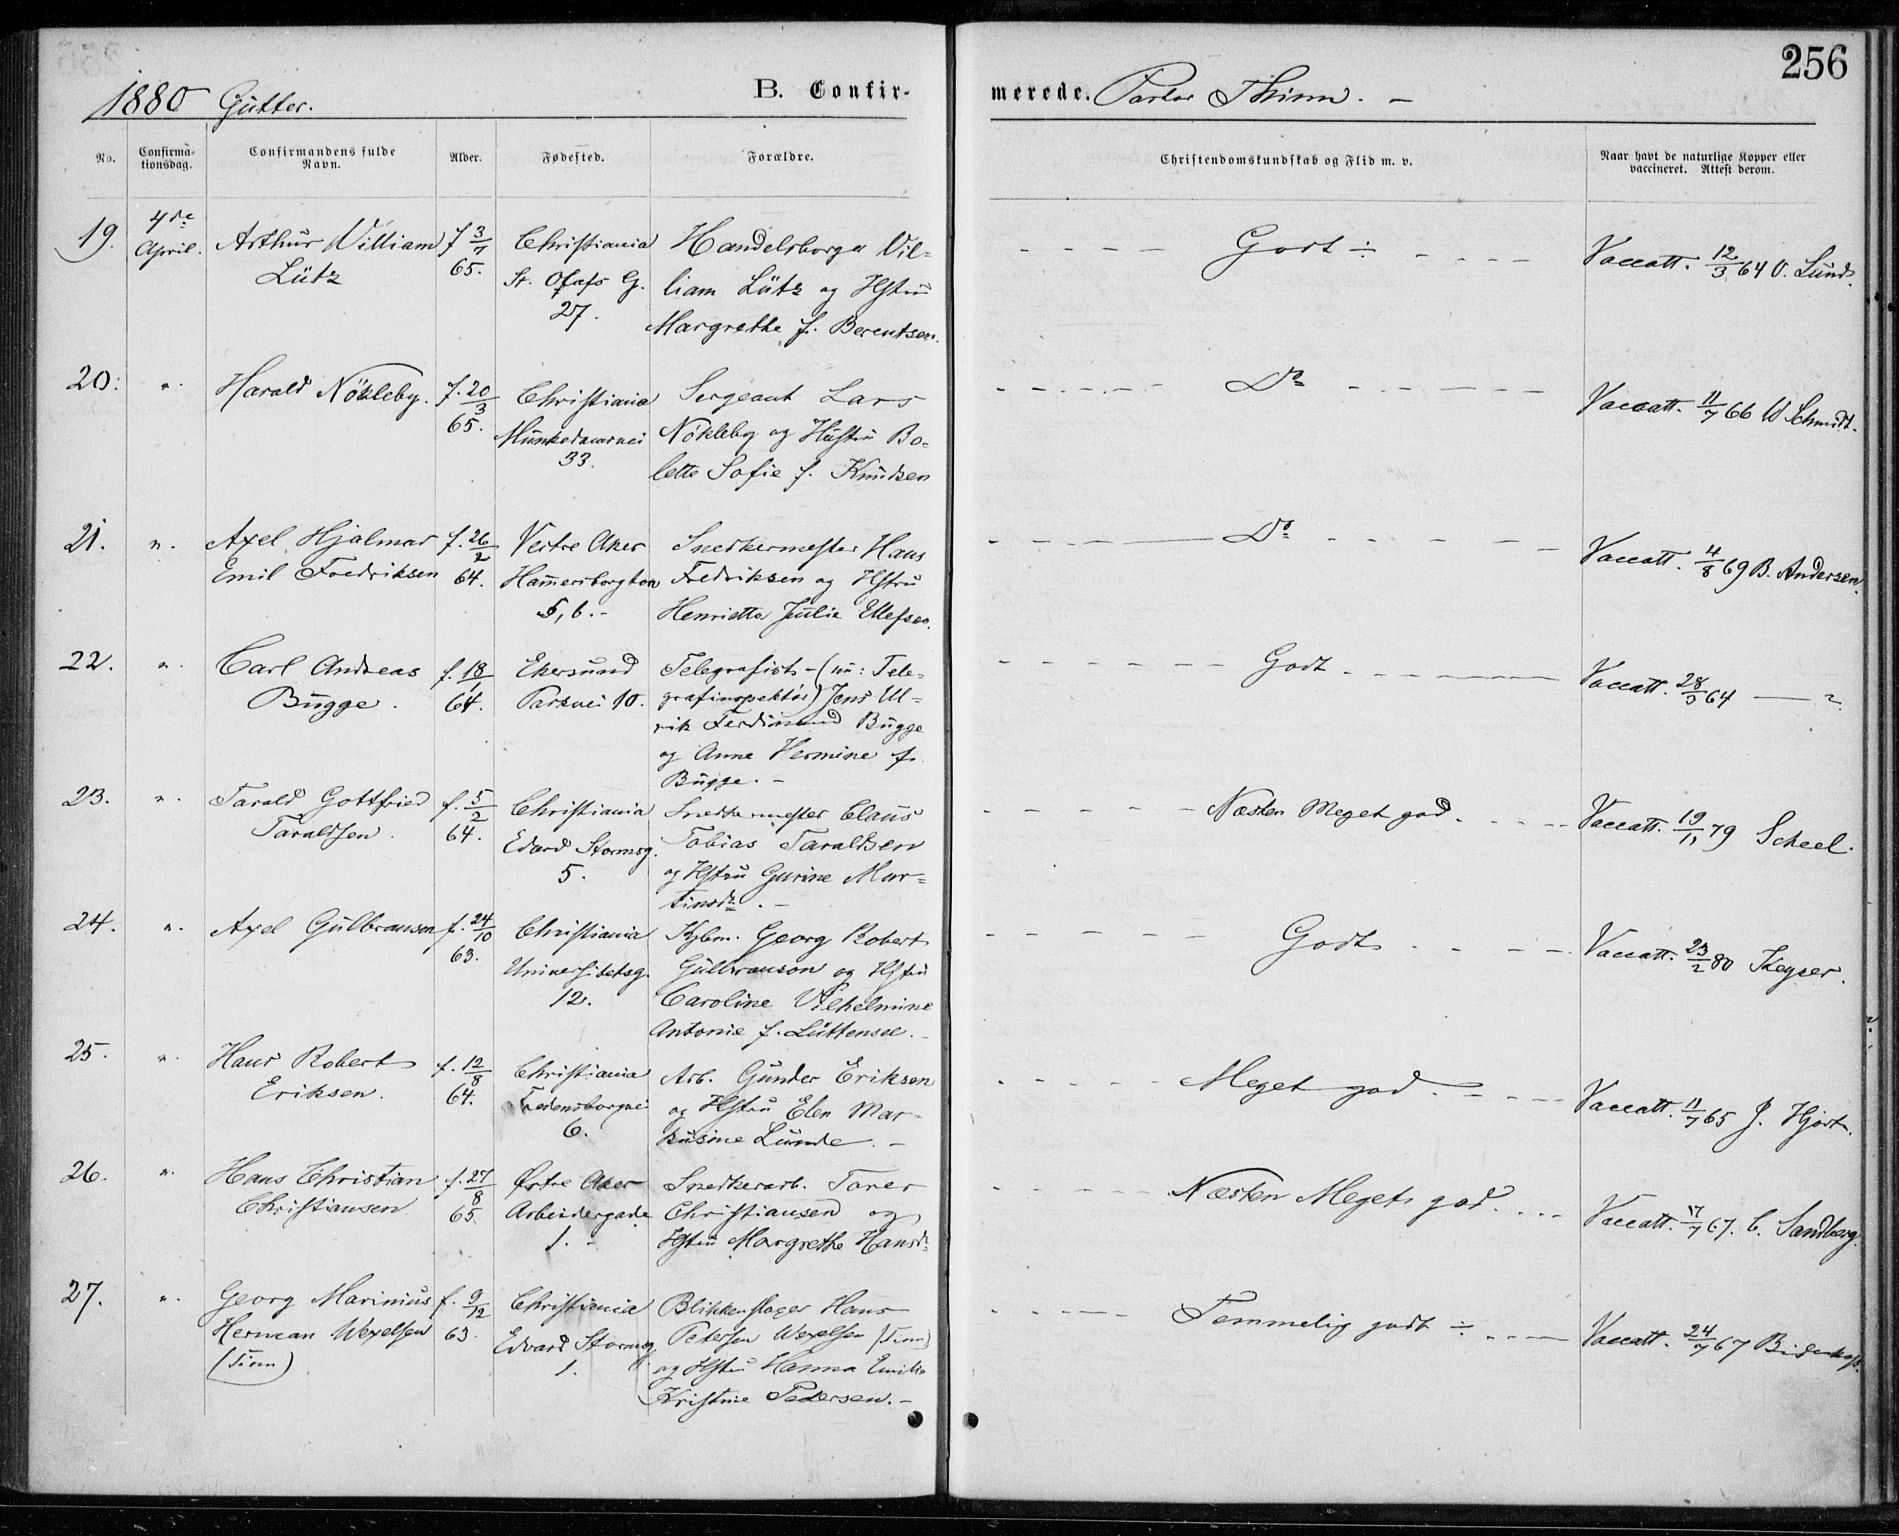 256
1880 Gutter. B. Confirmerede. Pastor Thinn. -
No.
Confirmationsdag.
Confirmandens fulde Navn.
Alder.
Fødested.
Forældre.
Christendomskundskab og Flid m. v.
Naar havt de naturlige Kopper eller vaccineret. Attest derom.
19. 4de April. Arthur William Lütz
f 3/7 65.
Christiania St. Olafs G. 27.
Handelsborger Vil-
liam Lütz og Hstru
Margrethe f. Berentsen.
Godt ÷
Vaccatt. 12/3 64 O. Lund.
20. " Harald Nökleby.
f. 20/3 65.
Christiania Munkedamsvei 33.
Sergeant Lars
Nökleby og Hustru Bo-
lette Sofie f. Knudsen
Do
Vaccatt. 11/7 66 W Schmidt.
21. " Axel Hjalmar Emil Fredriksen
f. 26/2 64.
Vestre Aker Hamersborgtorv 5, 6. -
Snedkermester Hans
Fredriksen og Hstru
Henriette Julie Ellefsen.
Do
Vaccatt. 4/8 69 B. Andersen.
22. " Carl Andreas Bugge.
f. 18/1 64.
Ekersund Parkvei 10.
Telegrafist - (nu: Tele-
grafinspektör) Jens Ul-
rik Ferdinand Bugge
og Anne Hermine f.
Bugge. -
Godt
Vaccatt. 28/3 64 — "
23. " Tarald Gottfried Taraldsen.
f. 5/2 64.
Christiania Edvard Stormsg. 5.
Snedkermester Claus
Tobias Taraldsen
og Hstru Gurine Mar-
tinsdr. -
Næsten Meget god.
Vaccatt. 19/11 79 Scheel.
24. " Axel Gulbransen
f. 24/10 63.
Christiania Universitetsg. 12.
Kjbm. Georg Robert
Gulbranson og Hstru
Caroline Vilhelmine
Antonie f. Lüttensee. -
Godt
Vaccatt. 23/2 80 Keyser.
25. " Hans Robert Eriksen.
f. 12/8 64.
Christiania Fredensborgvei 6.
Arb. Gunder Eriksen
og Hstru Elen Mar-
kusine Lunde. -
Meget god.
Vaccatt. 11/7 65 J. Hjort.
26. " Hans Christian Christiansen
f. 27/8 65
Østre Aker Arbeidergade 1. -
Snedkerarb. Tarer
Christiansen og
Hstru Margrethe Hansdr
Næsten Meget god.
Vaccatt. 17/7 67. C. Sandberg.
27. " Georg Marinius Herman Wexelsen (Tvm)
f. 9/12 63.
Christiania Edvard Stormsg. 1.
Blikkenslager Hans
Petersen Wexelsen
og Hstru Hanna Emilie
Kristine Pedersen. -
Temmelig godt ÷
Vaccatt. 24/7 67